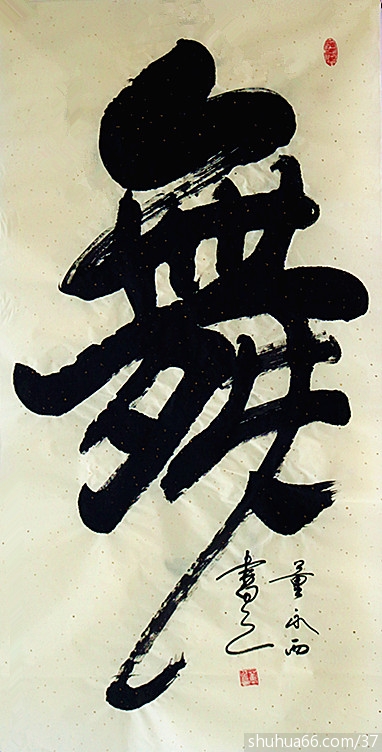 舞
董永西
書之
shuhua66.com/37